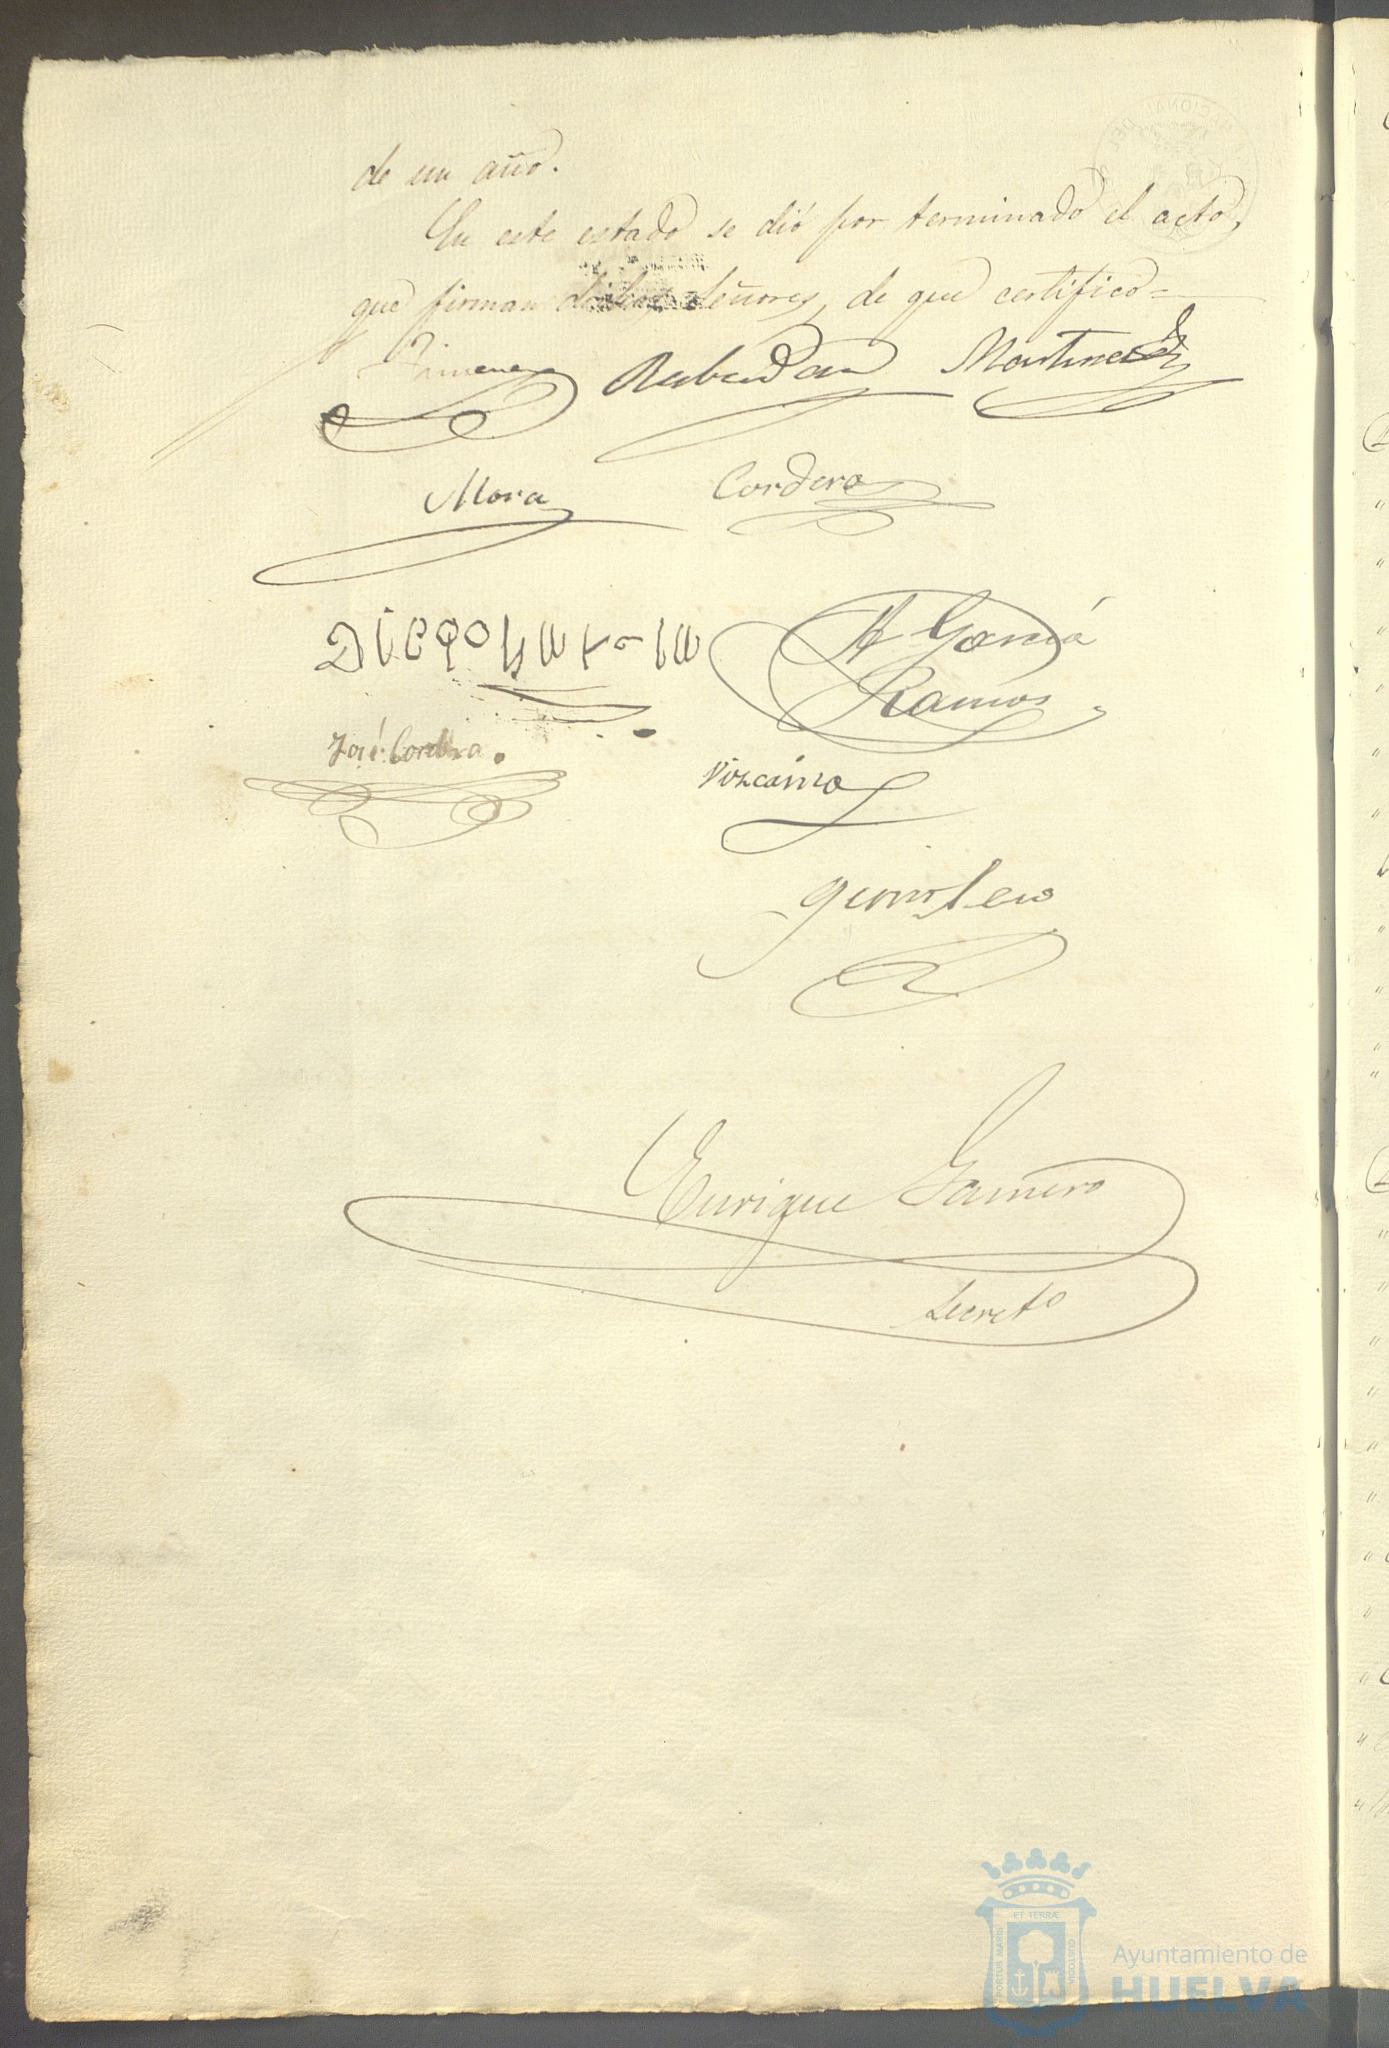 de un año.
En este estado se dió por terminado el acto,
que firman dichos Señores, de que certifico=
Jimenez Rabadan Martinez
Mora Cordero
A García
Ramos
José Cordero.
Vizcaino
Quintero
Enrique Gamero
Secretº
PORTUS MARIS ET TERRÆ CUSTODIA
Ayuntamiento de
HUELVA